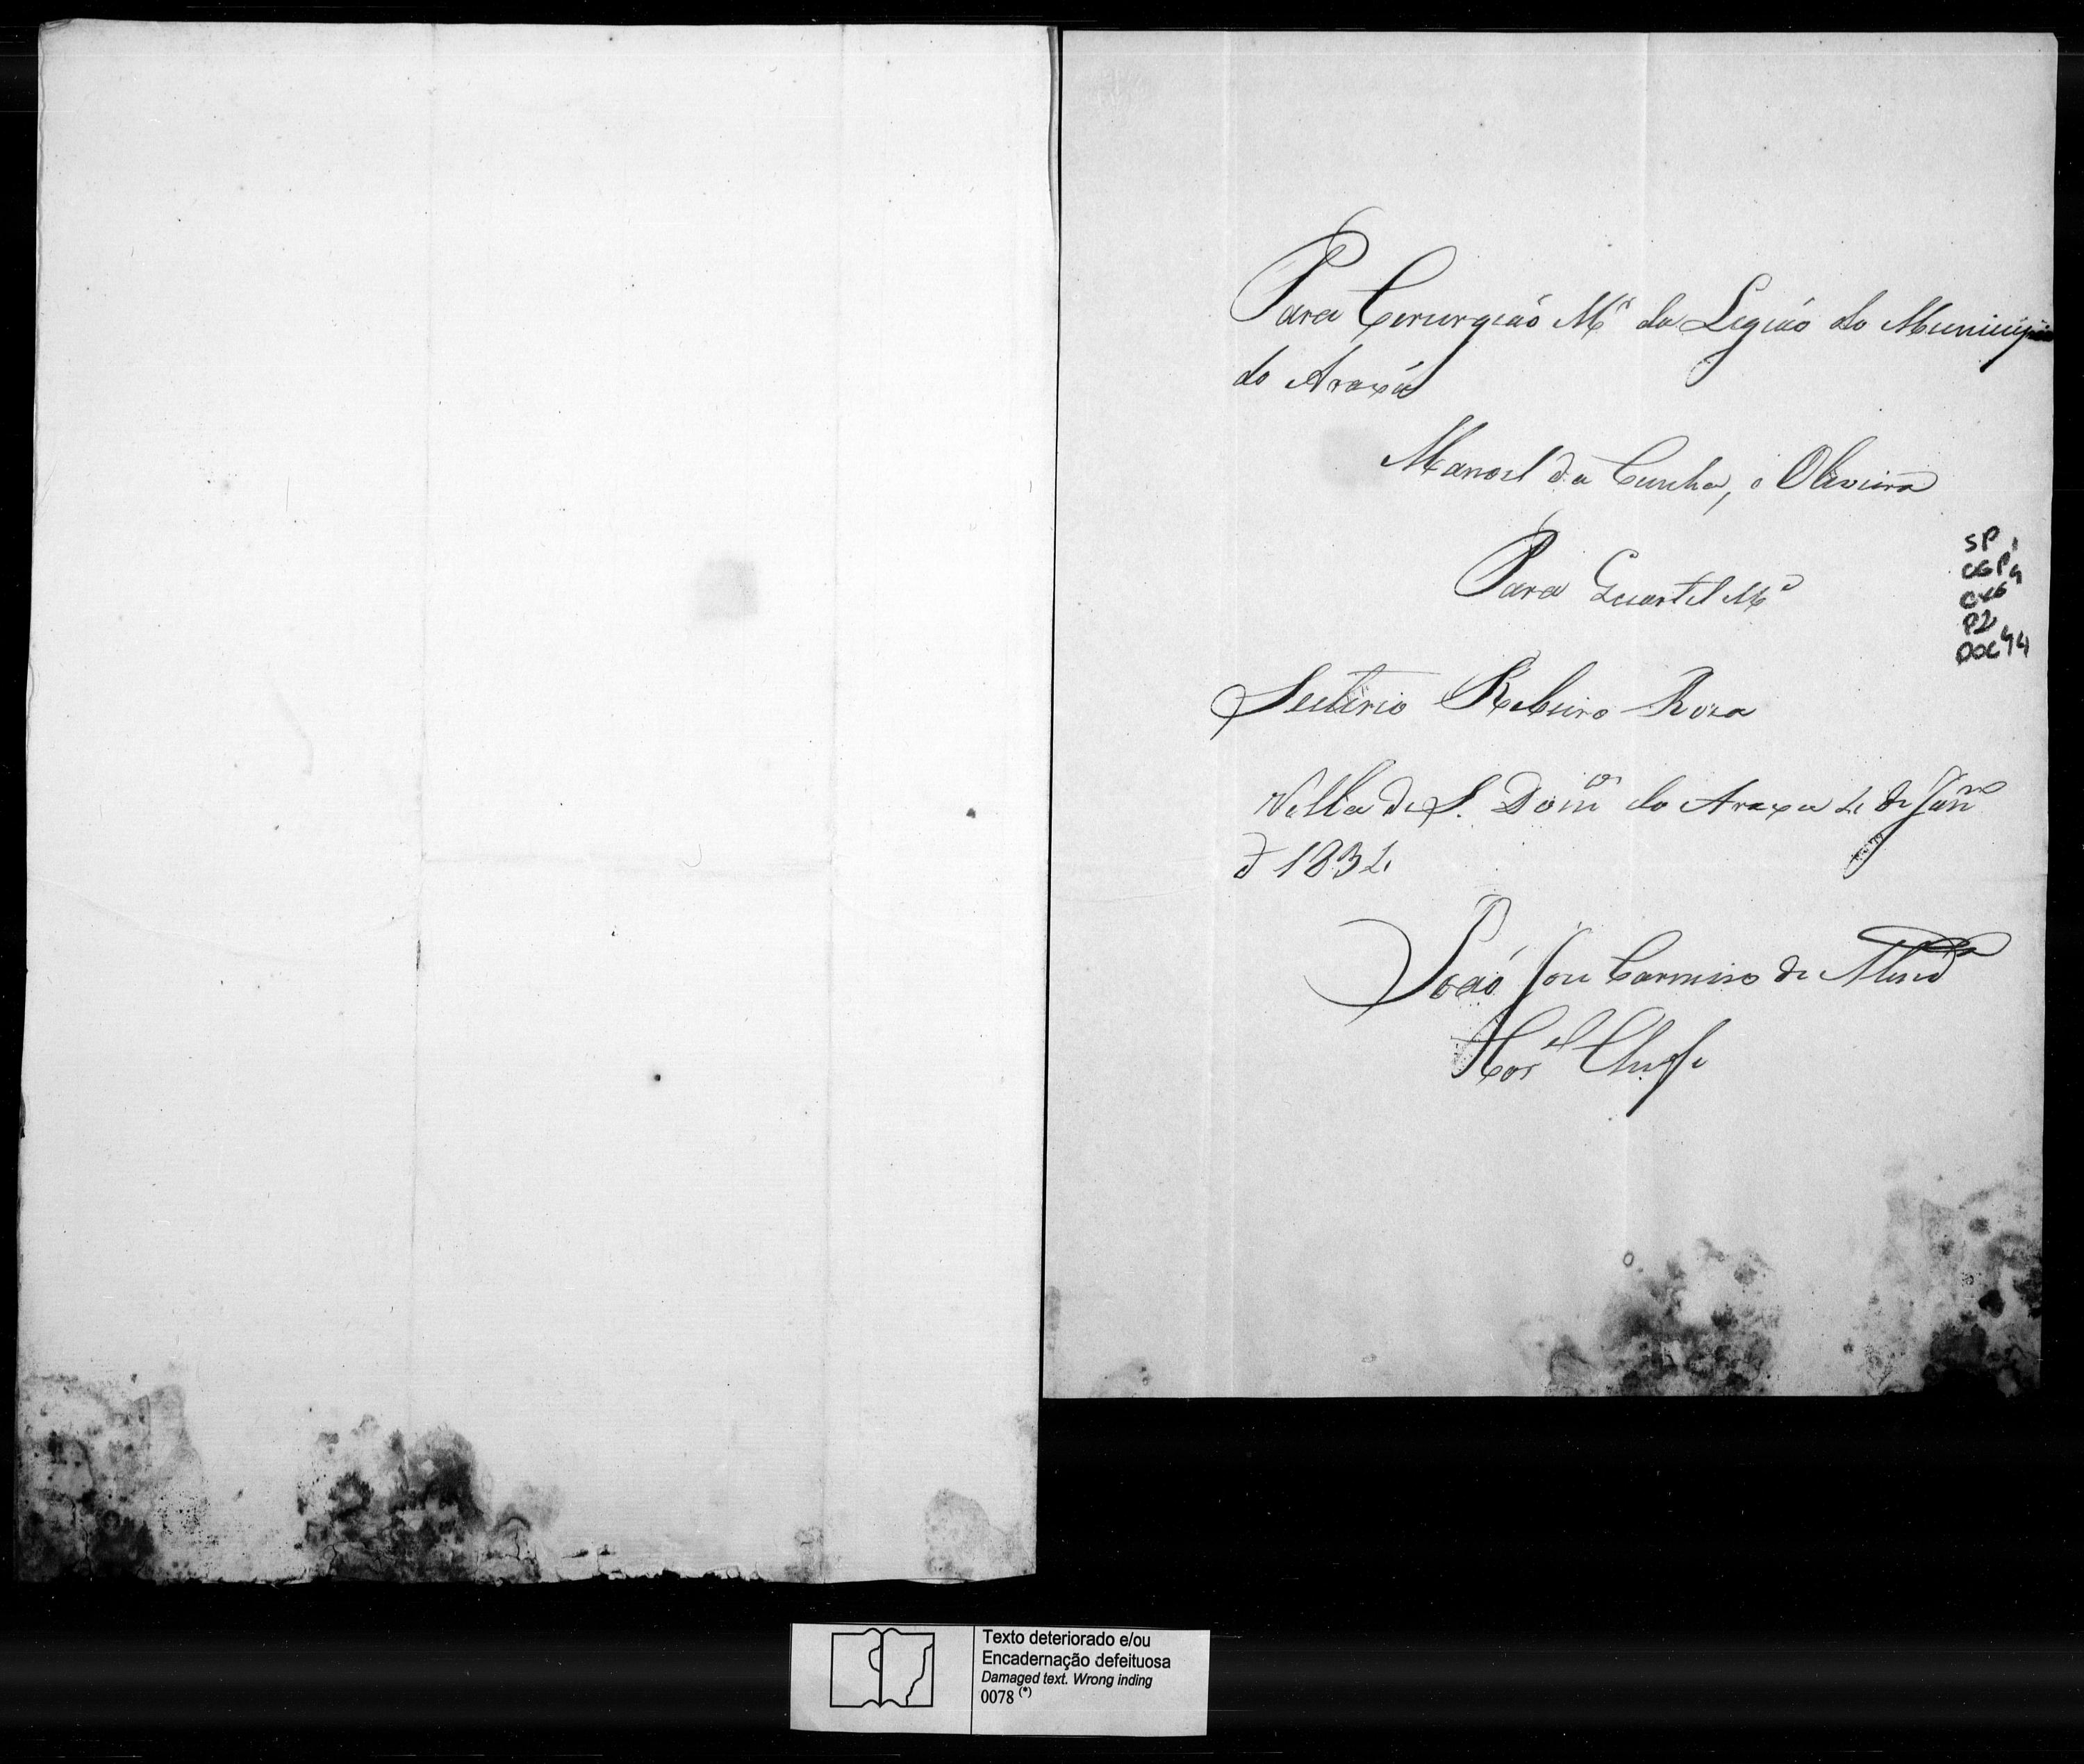 Para Cerurgiaõ Mr da Legiáo do Municipio
do Araxá
Manoel da Cunha, e Oliveira
Para Quartel Me
Leuterio Ribeiro Roza
Villa de S. Domos do Araxa 4 de Janro
d 1834
Joaó Joze Carneiro de
Corel Cheffe
SP 1
CX6
P2
DOC 44
Texto deteriorado e/ou
Encadernação defeituosa
Damaged text. Wrong inding
0078 (*)